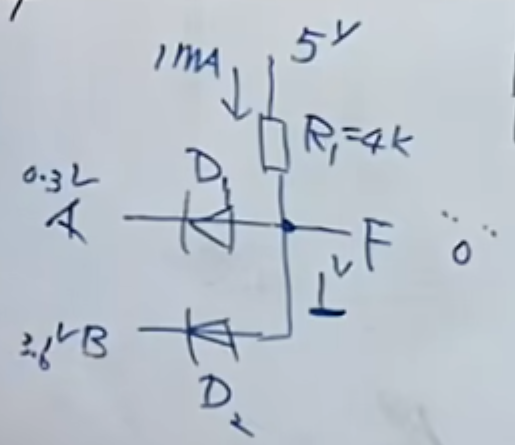 5V
1mA
R₁=4k
D₁
0.3V
A
F
"0"
1V
3.6V B
D₂